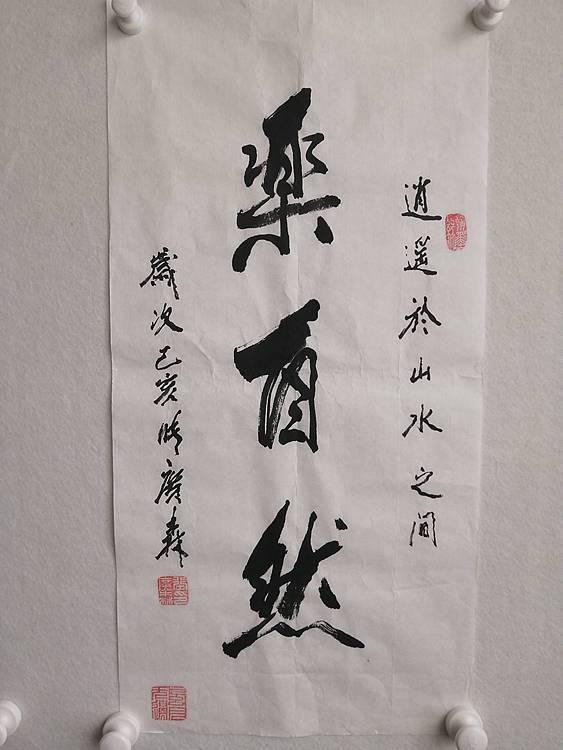 逍遥於山水之间
樂自然
歲次己亥廣森